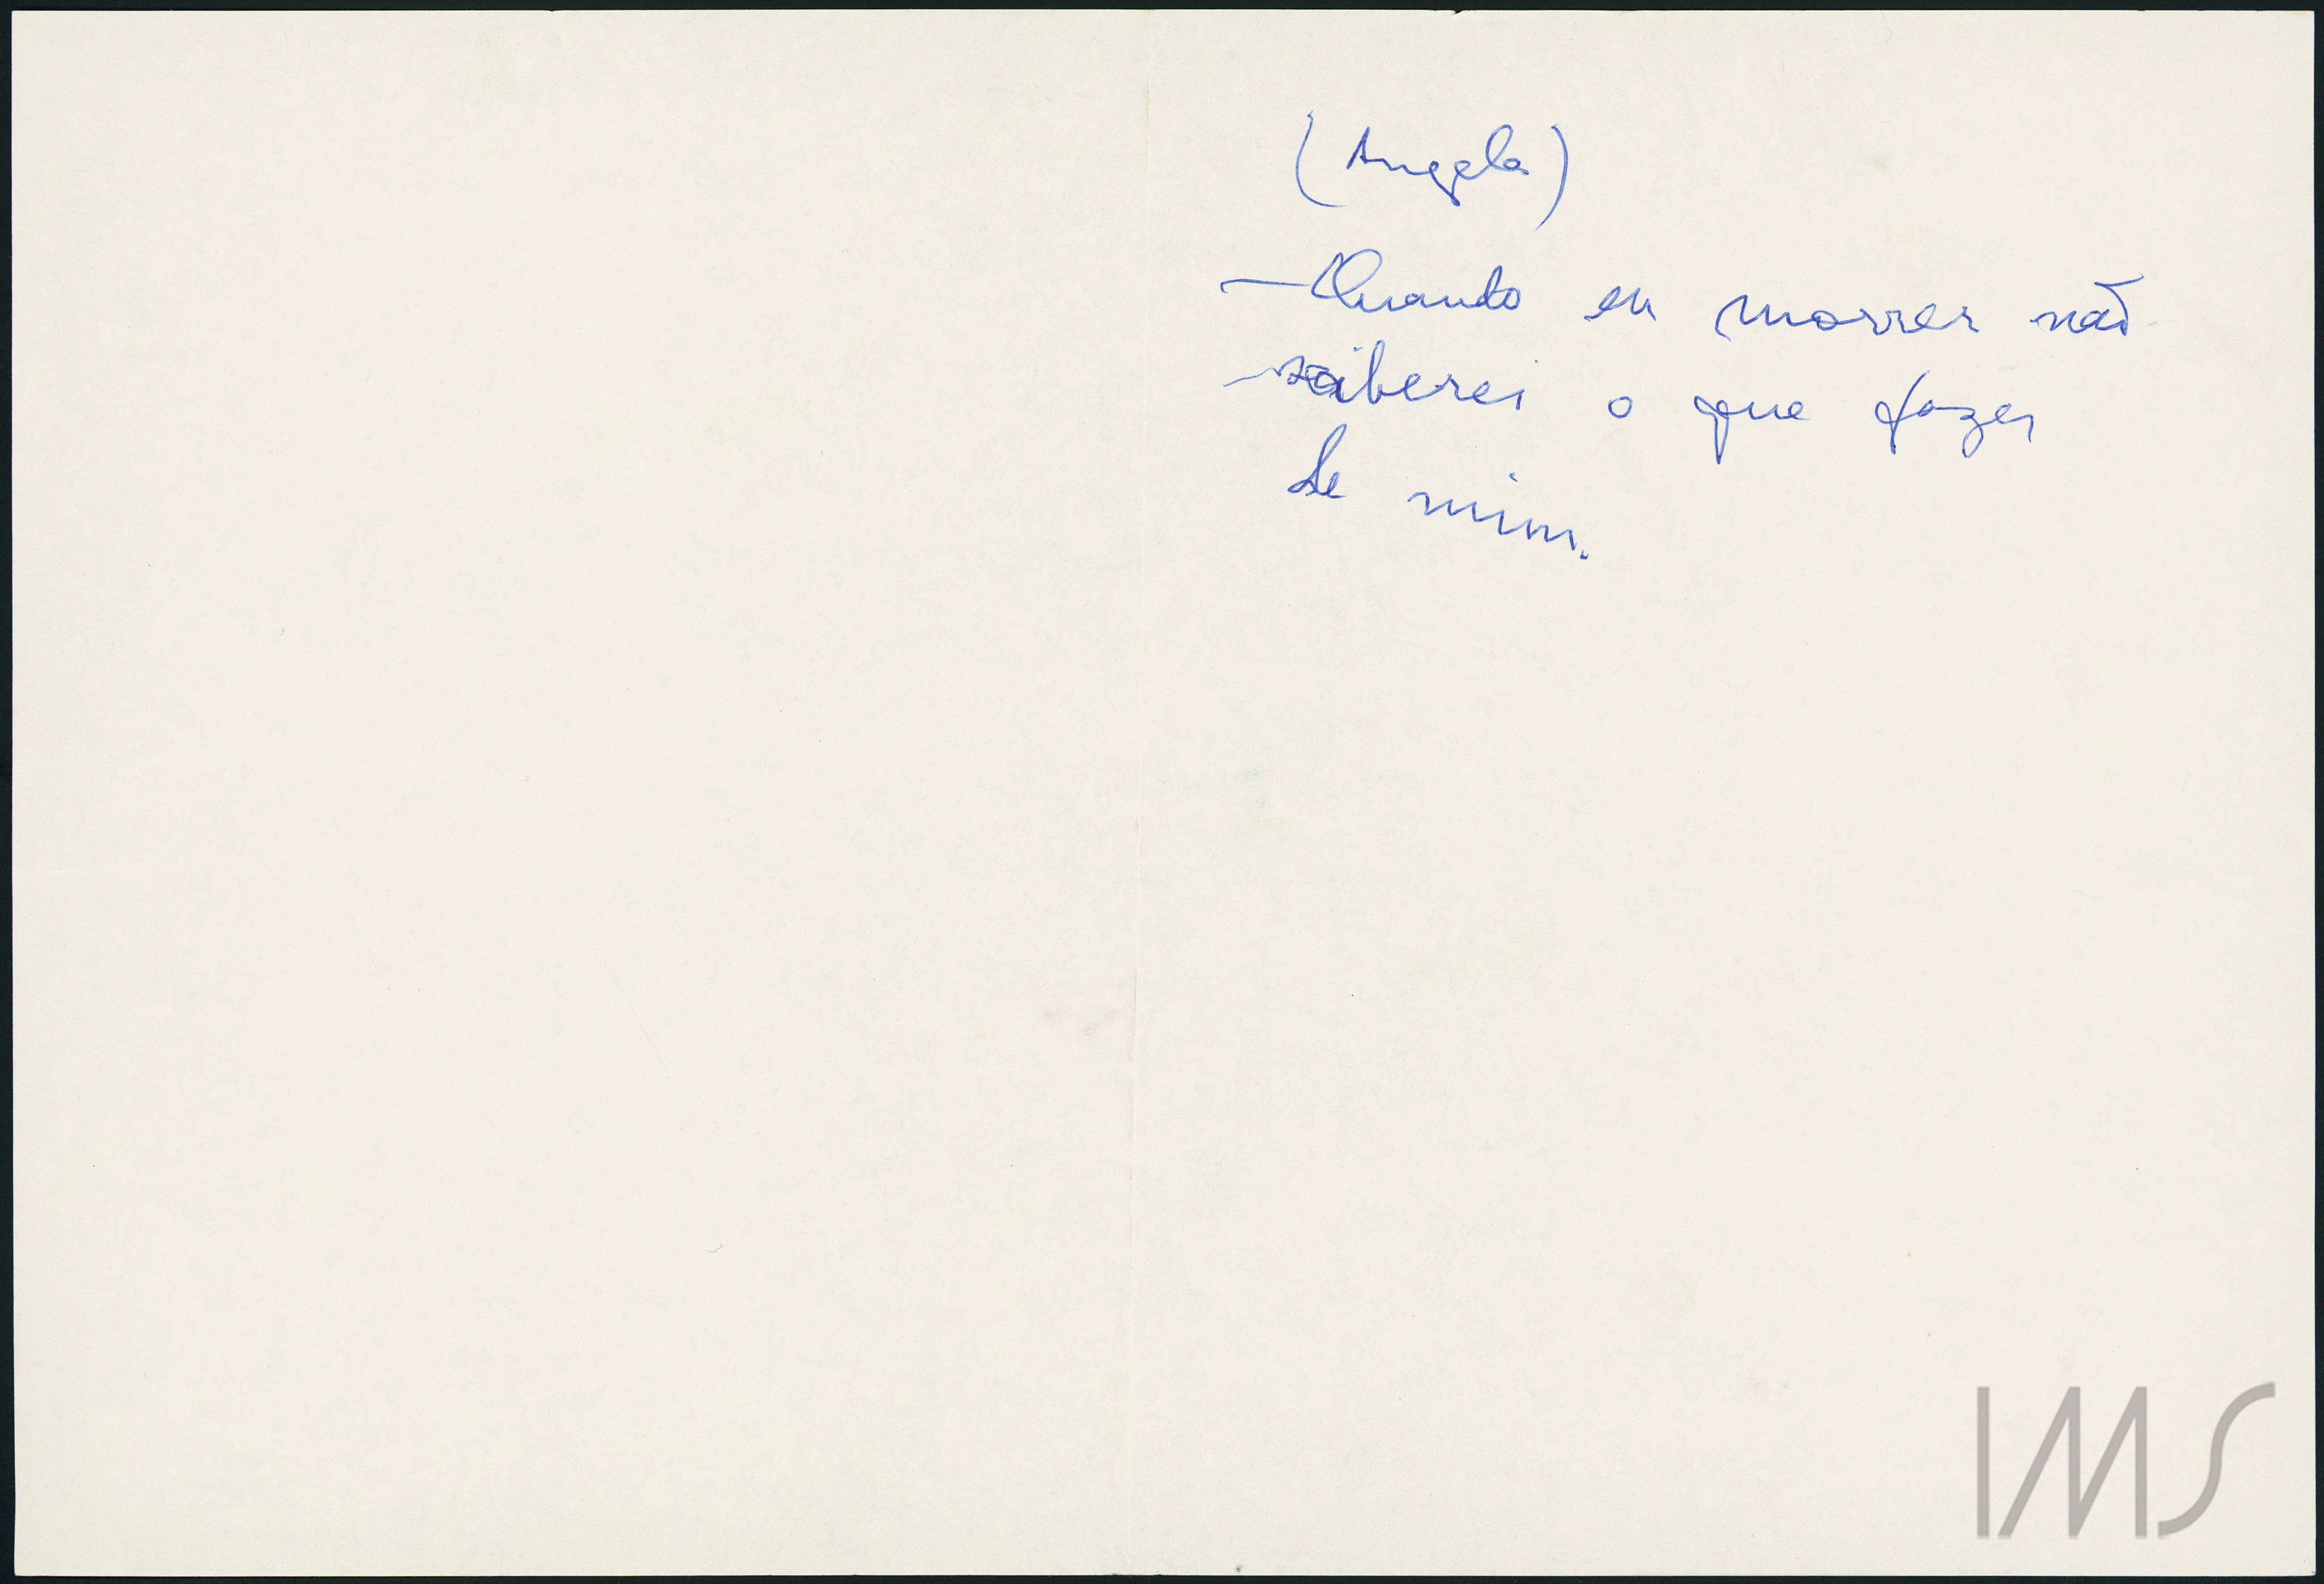 (Angela)
— Quando eu morrer não
saberei o que fazer
de mim.
IMS